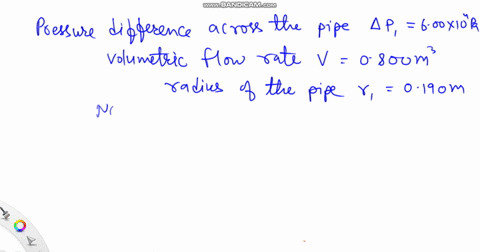 www.BANDICAM.com
Pressure difference across the pipe ΔP₁ = 6.00×10⁴ Pa
volumetric flow rate V = 0.800 m³
radius of the pipe r₁ = 0.190 m
No